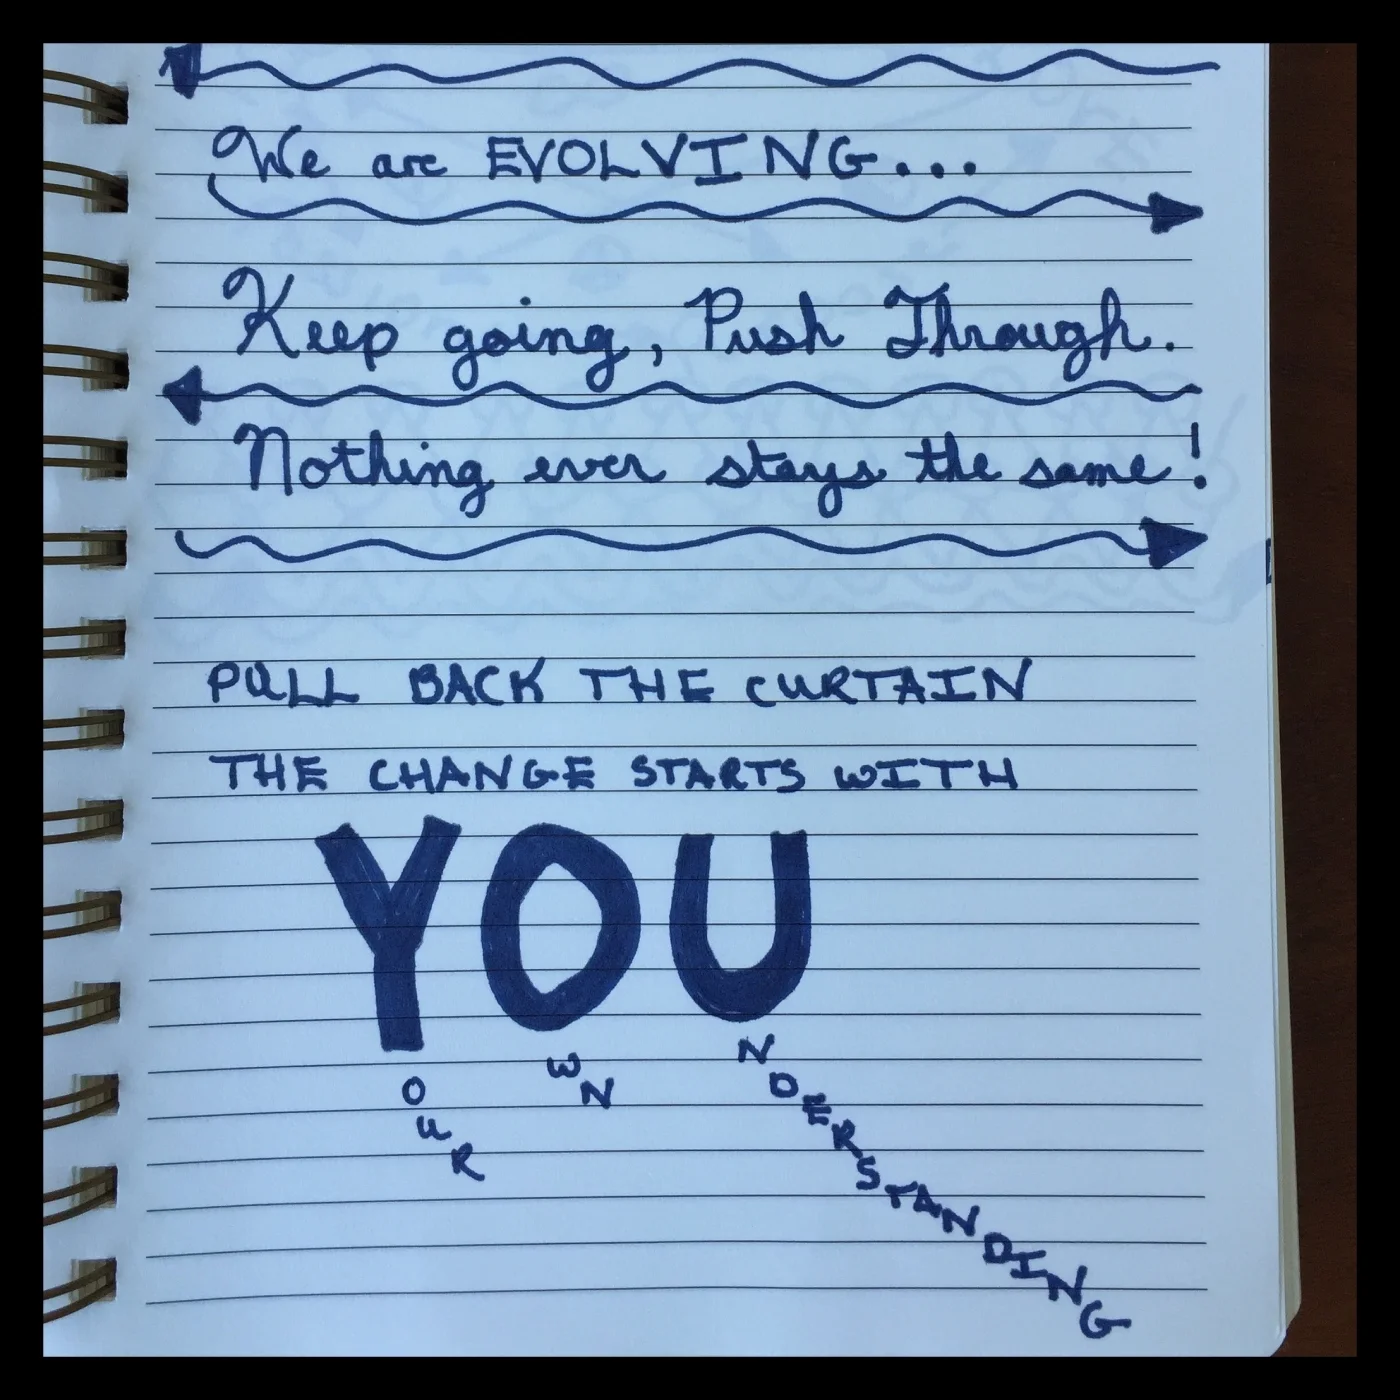 We are EVOLVING...
Keep going, Push Through.
Nothing ever stays the same!
PULL BACK THE CURTAIN
THE CHANGE STARTS WITH
YOU
OUR
WN
NDERSTANDING